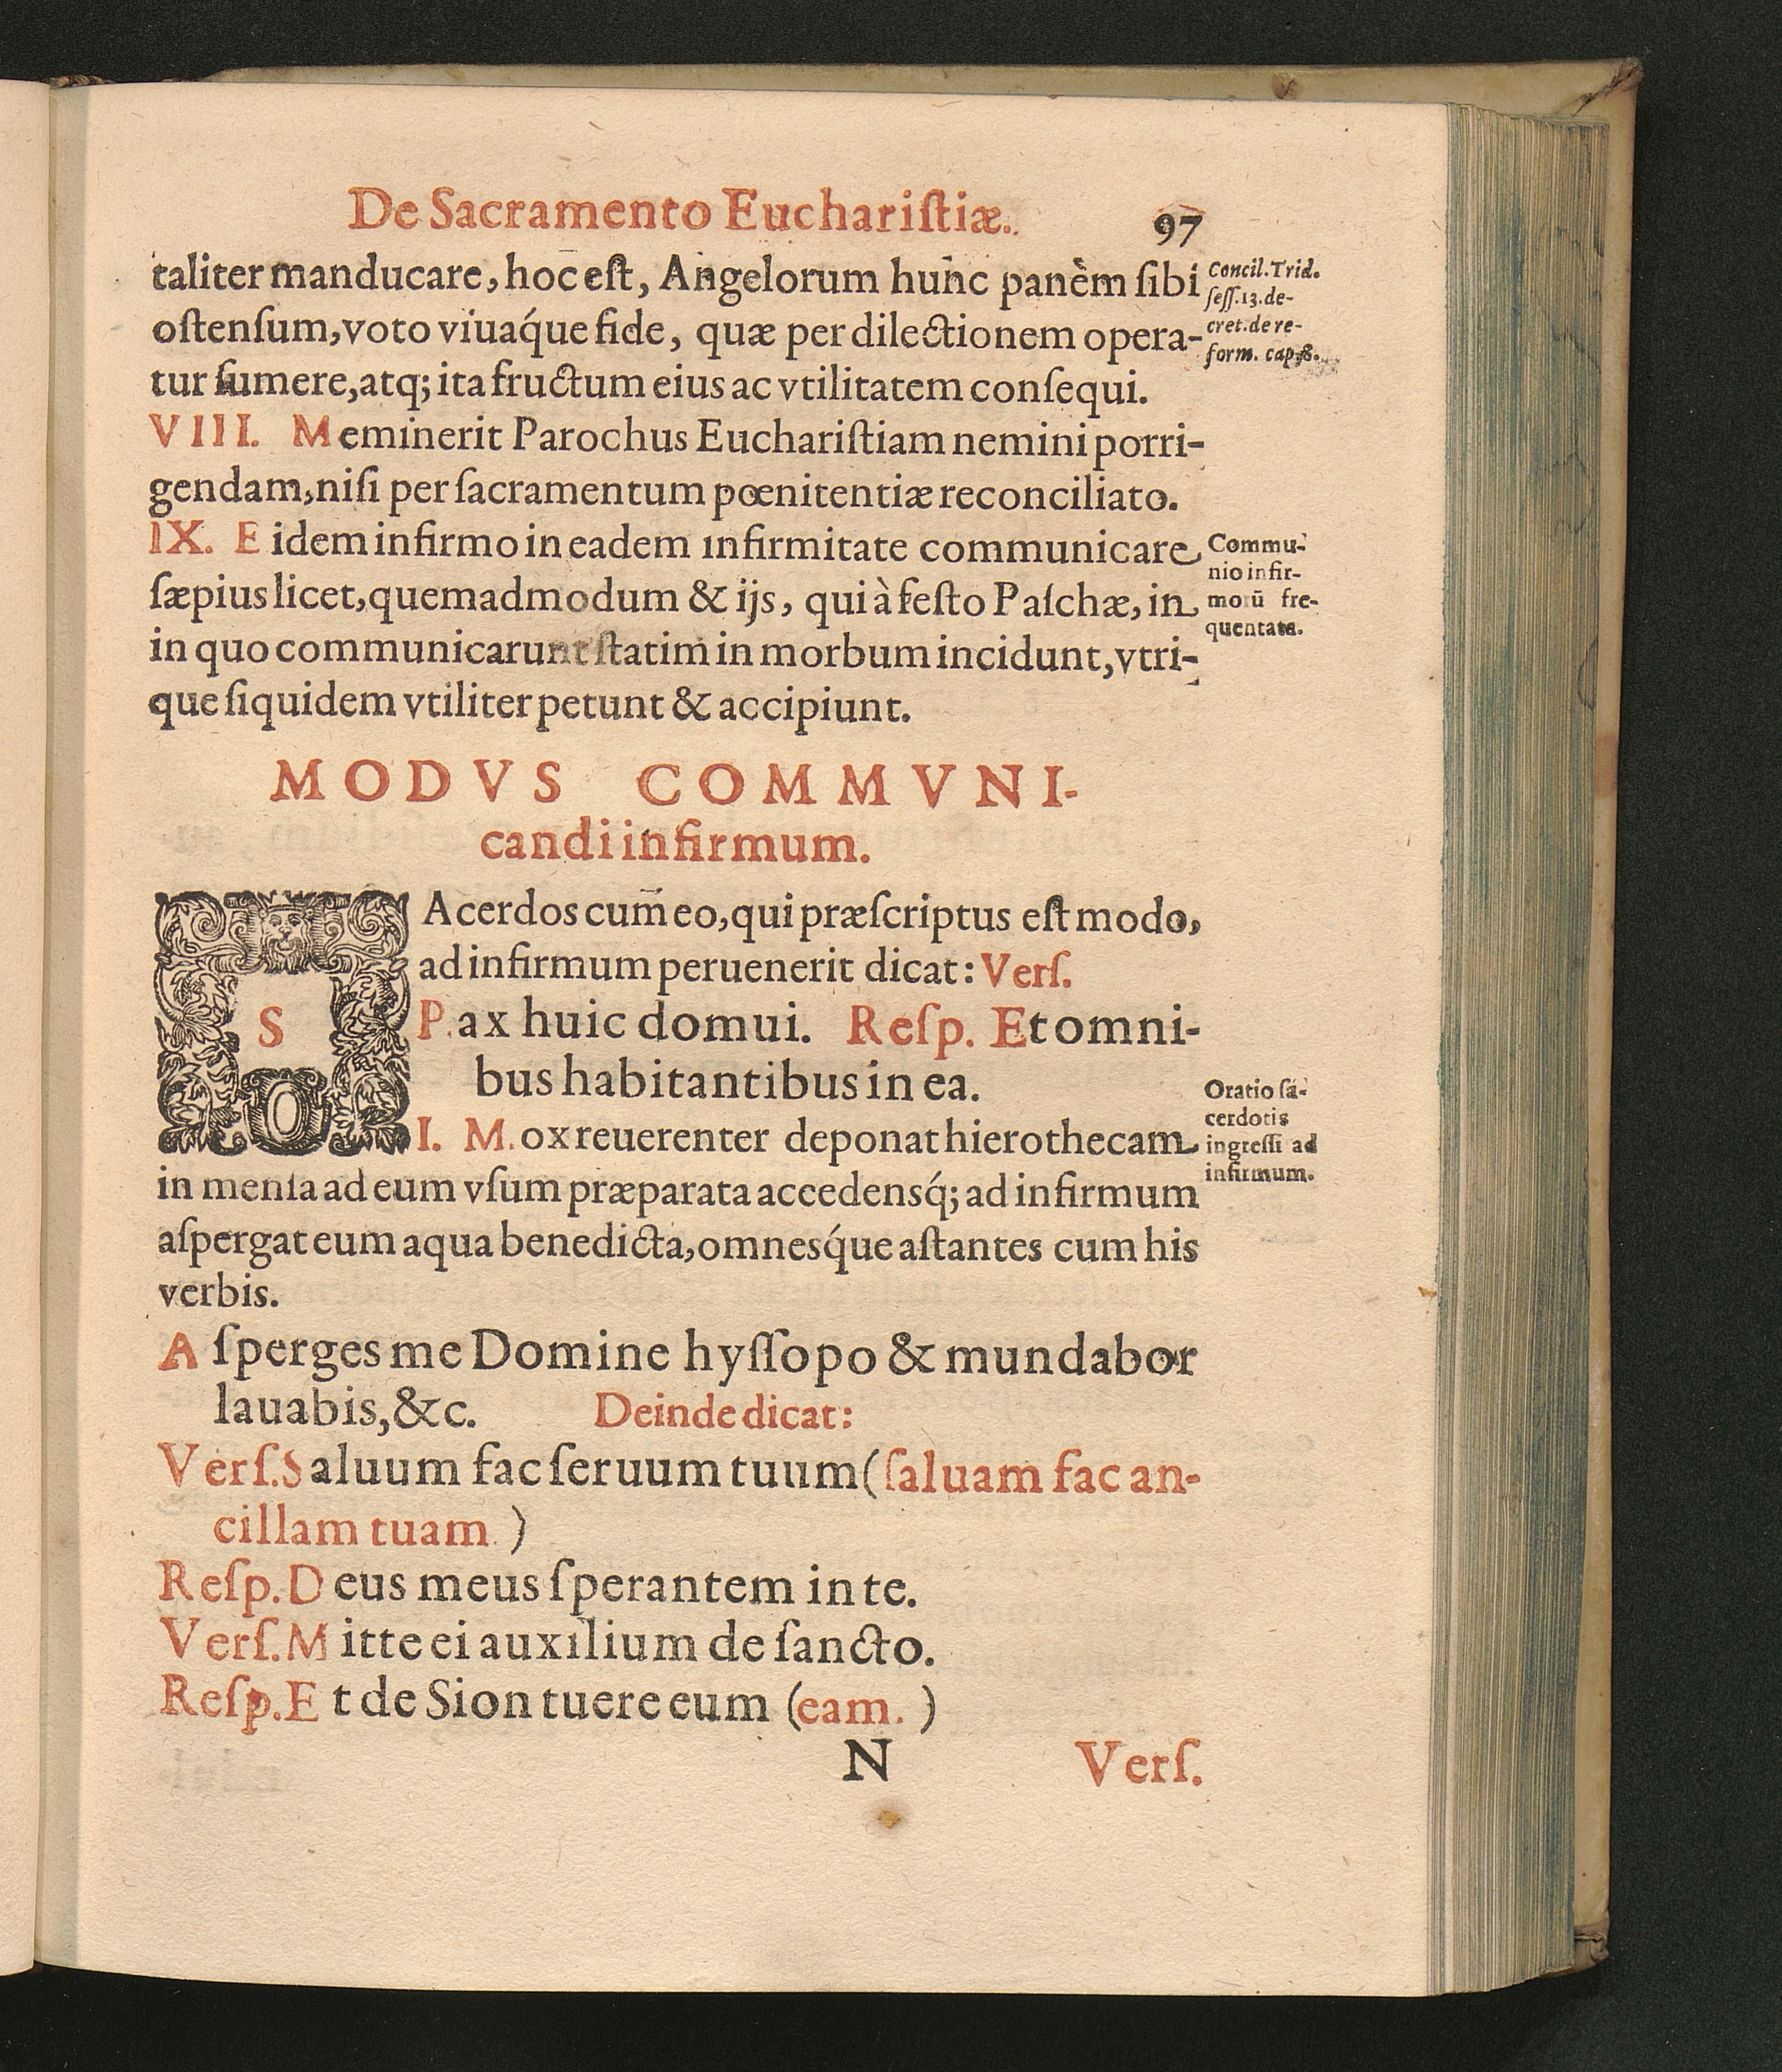 De Sacramento Euchariſtiæ. 97
taliter manducare, hoc eſt, Angelorum hunc panèm ſibi
oſtenſum, voto viuaq́ue fide, quæ per dilectionem opera-
tur ſumere, atq; ita fructum eius ac vtilitatem conſequi.
Concil. Trid.
ſeſſ. 13. de-
cret. de re-
form. cap. 8.
VIII. Meminerit Parochus Euchariſtiam nemini porri-
gendam, niſi per ſacramentum pœnitentiæ reconciliato.
IX. Eidem infirmo in eadem infirmitate communicare
ſæpius licet, quemadmodum & ijs, qui à feſto Paſchæ, in
in quo communicarunt ſtatim in morbum incidunt, vtri-
que ſiquidem vtiliter petunt & accipiunt.
Commu-
nio infir-
morũ fre-
quentata.
MODVS COMMVNI-
candi infirmum.
SAcerdos cum eo, qui præſcriptus eſt modo,
ad infirmum peruenerit dicat: Verſ.
Pax huic domui. Reſp. Et omni-
bus habitantibus in ea.
I. Mox reuerenter deponat hierothecam
in menſa ad eum vſum præparata accedensq́; ad infirmum
aſpergat eum aqua benedicta, omnesq́ue aſtantes cum his
verbis.
Oratio ſa-
cerdotis
ingreſſi ad
infirmum.
Aſperges me Domine hyſſopo & mundabor
lauabis, &c. Deinde dicat:
Verſ. Saluum fac ſeruum tuum (ſaluam fac an-
cillam tuam)
Reſp. Deus meus ſperantem in te.
Verſ. Mitte ei auxilium de ſancto.
Reſp. Et de Sion tuere eum (eam.)
N Verſ.